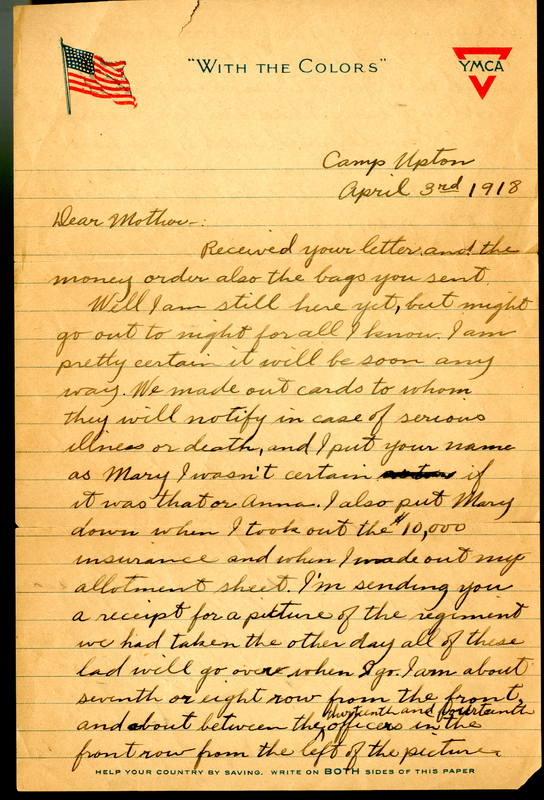 "WITH THE COLORS"
YMCA
Camp Upton
April 3rd 1918
Dear Mother-:
Received your letter and the
money order also the bags you sent.
Well I am still here yet, but might
go out to night for all I know. I am
pretty certain it will be soon any
way. We made out cards to whom
they will notify in case of serious
illness or death, and I put your name
as Mary I wasn't certain if
it was that or Anna. I also put Mary
down when I took out the $10,000
insurance and when I made out my
allotment sheet. I'm sending you
a receipt for a picture of the regiment
we had taken the other day all of these
lad will go over when I go. I am about
seventh or eight row from the front,
and about between the thirteenth and fourteenth officers in the
front row from the left of the picture.
HELP YOUR COUNTRY BY SAVING. WRITE ON BOTH SIDES OF THIS PAPER